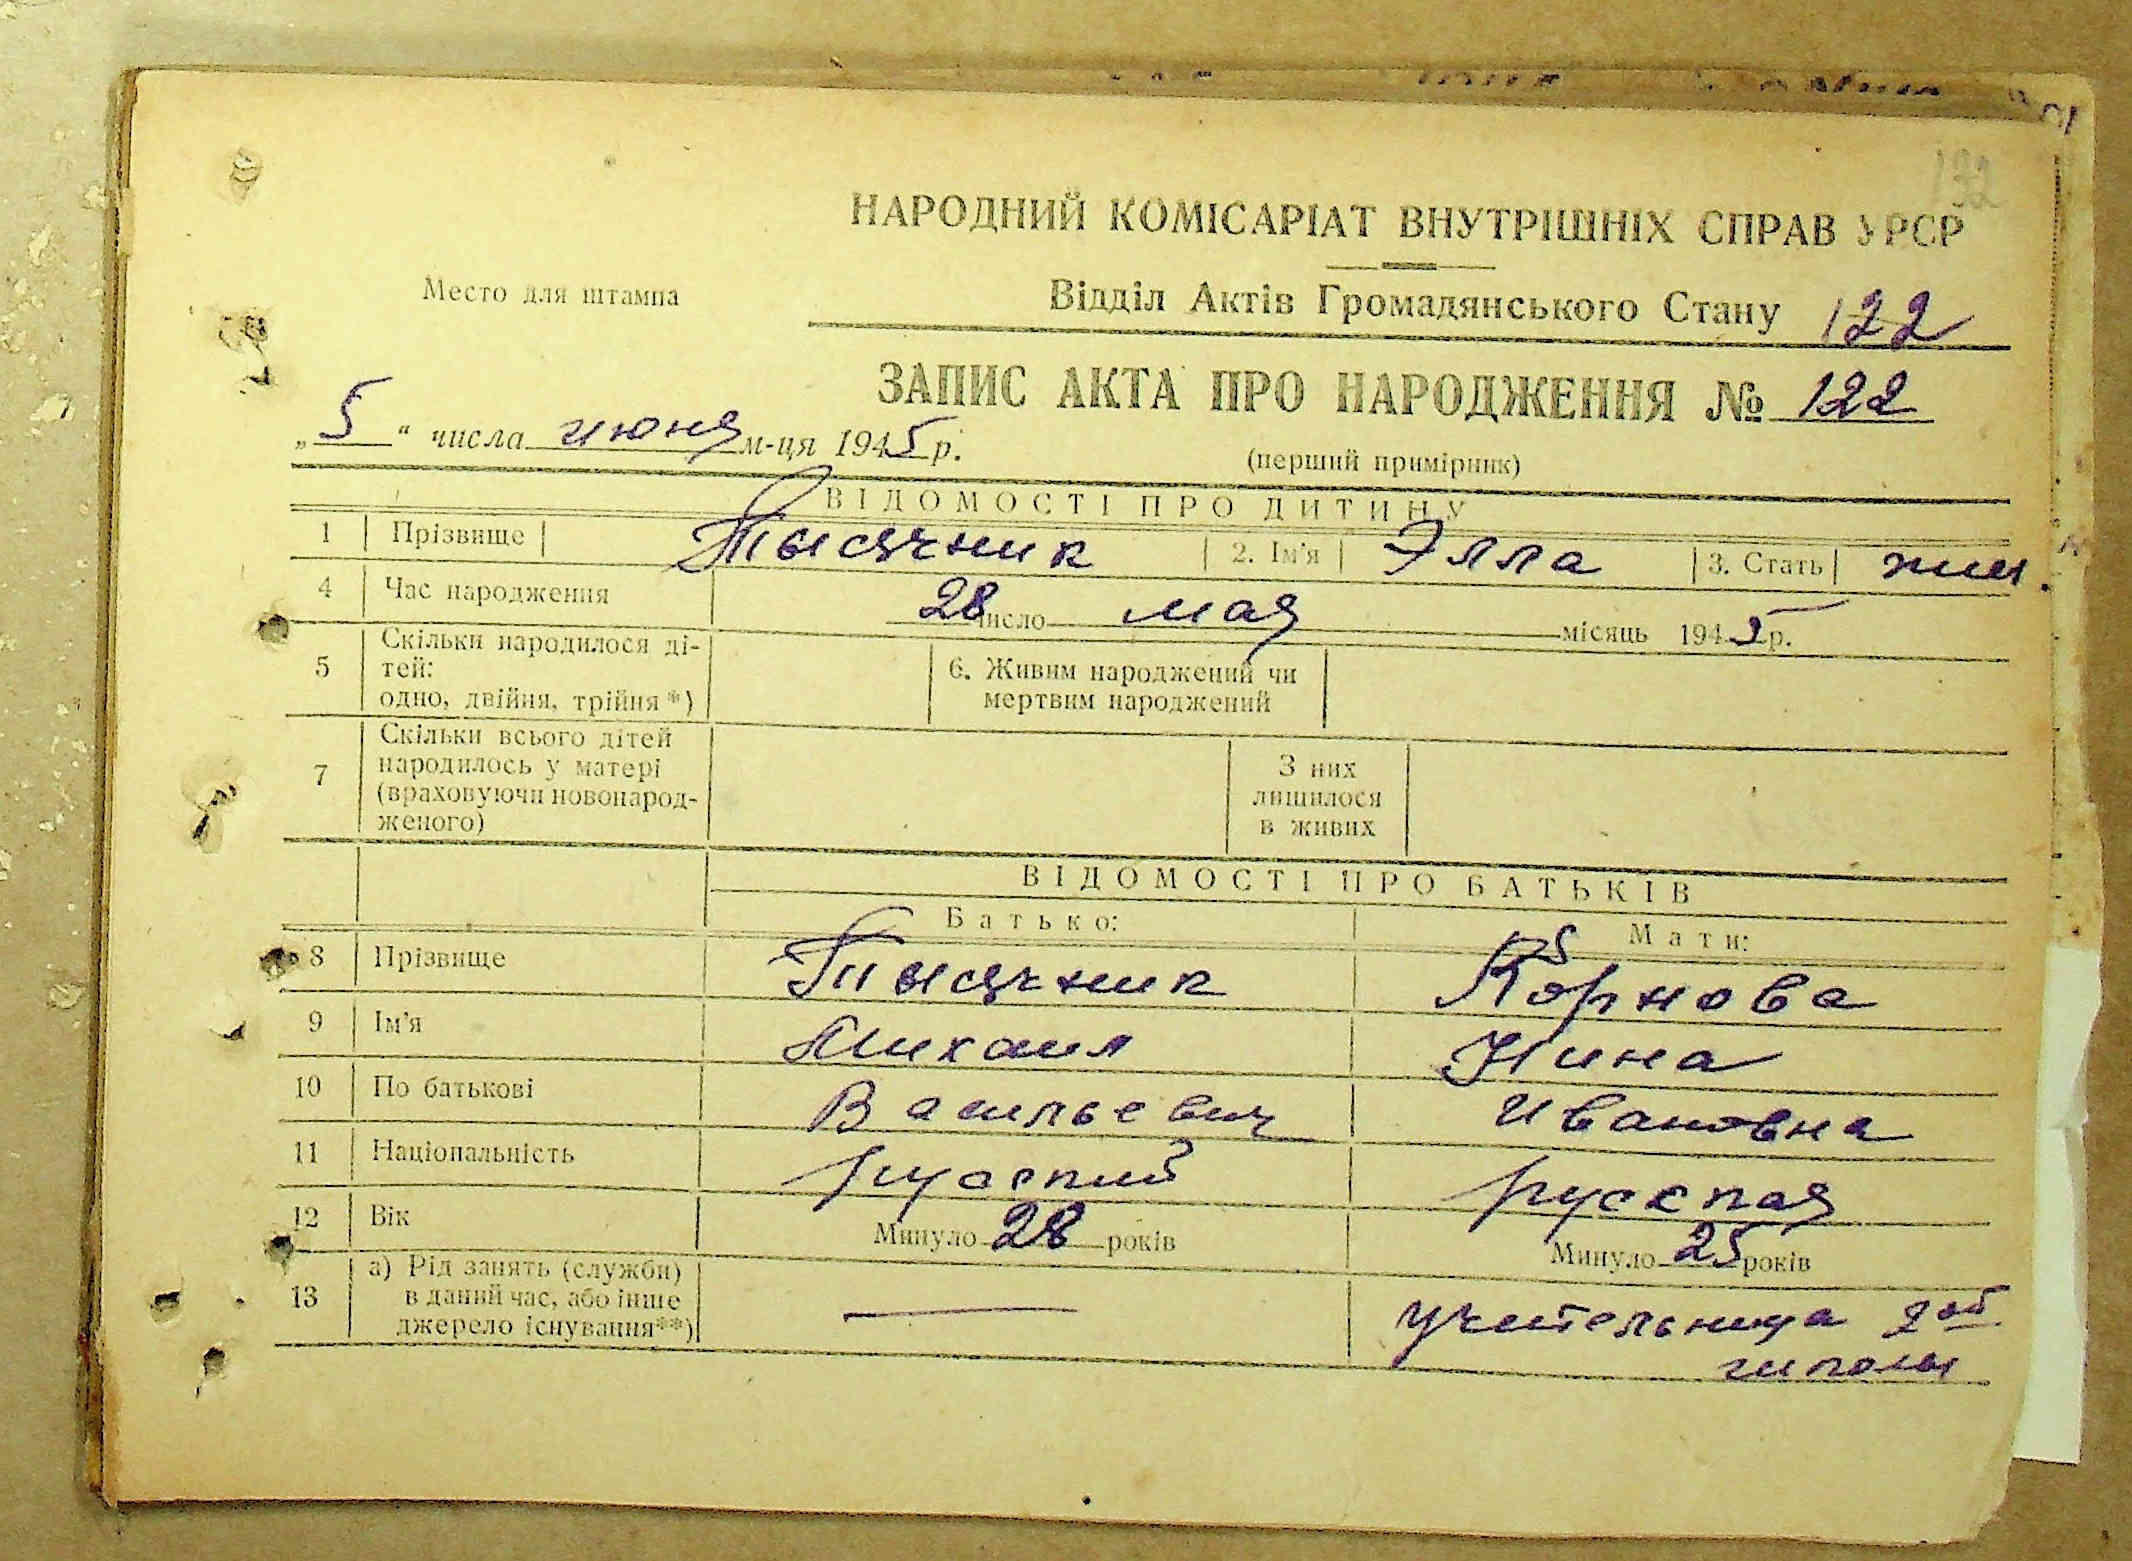 132
НАРОДНИЙ КОМІСАРІАТ ВНУТРІШНІХ СПРАВ УРСР
Место для штампа
Відділ Актів Громадянського Стану 122
ЗАПИС АКТА ПРО НАРОДЖЕННЯ № 122
„5“ числа июня м-ця 1945 р.
(перший примірник)
ВІДОМОСТІ ПРО ДИТИНУ
1 Прізвище Тысячник 2. Ім'я Элла 3. Стать жен.
4 Час народження 28 число мая місяць 1945 р.
5 Скільки народилося ді-
тей:
одно, двійня, трійня*)
6. Живим народжений чи
мертвим народжений
7 Скільки всього дітей
народилось у матері
(враховуючи новонарод-
женого)
З них
лишилося
в живих
ВІДОМОСТІ ПРО БАТЬКІВ
Батько: Мати:
8 Прізвище Тысячник Корнова
9 Ім'я Михаил Нина
10 По батькові Васильевич Ивановна
11 Національність русский русская
12 Вік Минуло 28 років Минуло 25 років
13 а) Рід занять (служби)
в даний час, або інше
джерело існування**)
— учительница 2ой
школы